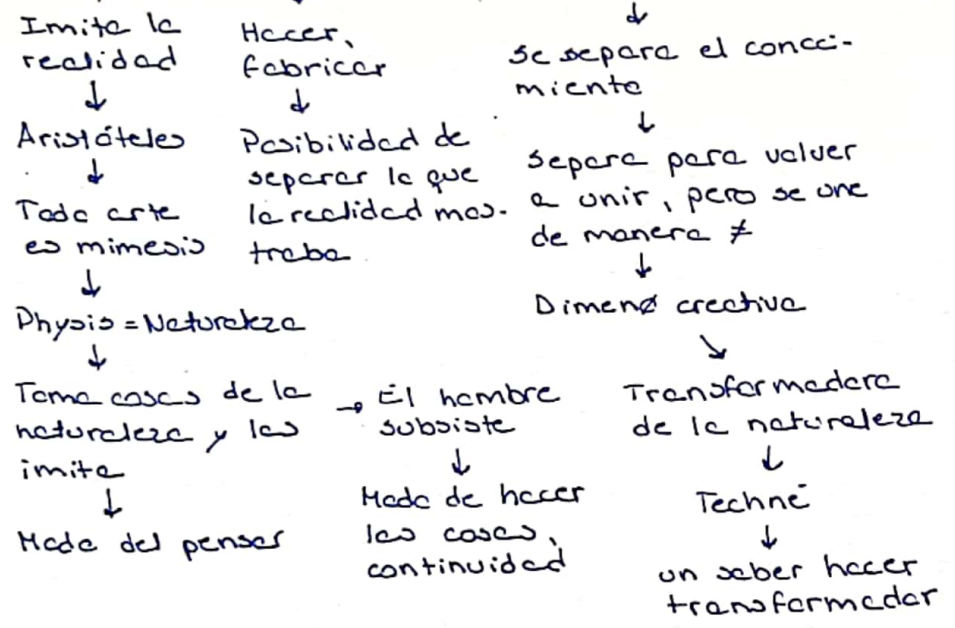 Imita la
realidad
↓
Aristóteles
↓
Todo arte
es mimesis
↓
Physis = Naturaleza
↓
Toma cosas de la
naturaleza y las
imita
↓
Modo del pensar
Hacer,
fabricar
↓
Posibilidad de
separar lo que
la realidad mos-
traba
→ El hombre
subsiste
↓
Modo de hacer
las cosas,
continuidad
↓
Se separa el conoci-
miento
↓
Separa para volver
a unir, pero se une
de manera ≠
↓
Dimenø creativa
↘
Transformadora
de la naturaleza
↓
Techné
↓
un saber hacer
transformador